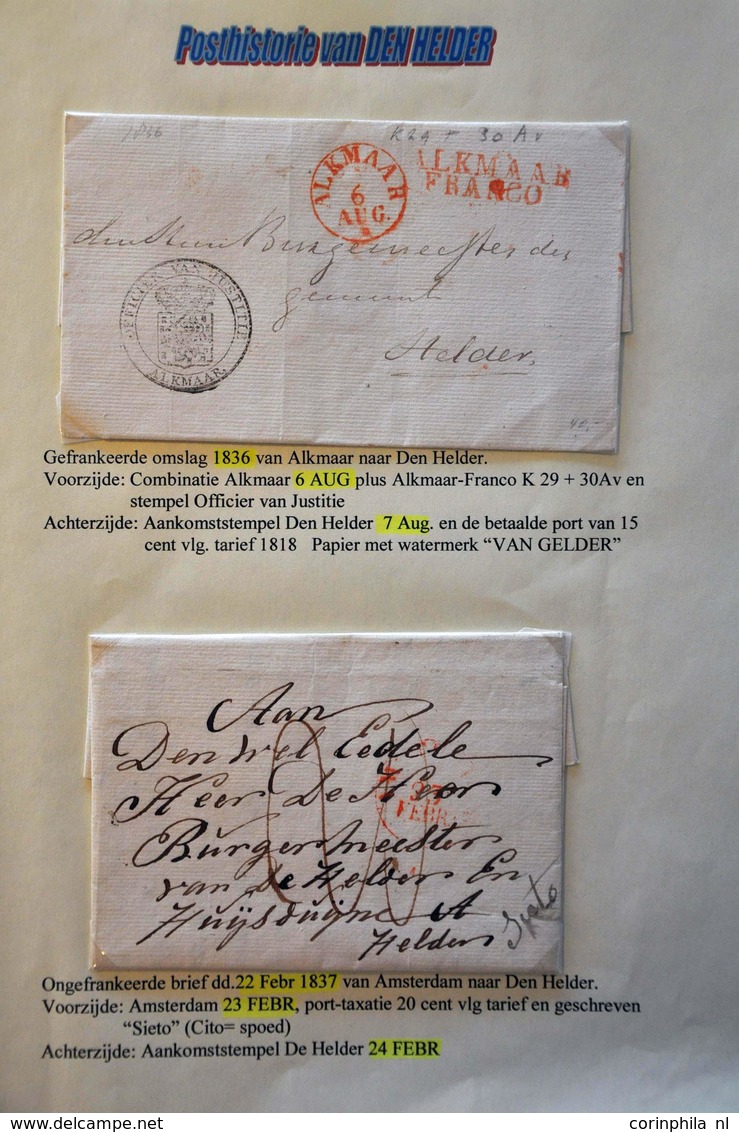 Posthistorie van DEN HELDER
K29 + 30 Av
ALKMAAR
6
AUG.
ALKMAAR
FRANCO
Burgemeester der
gemeente
Helder
OFFICIER VAN JUSTITIE
ALKMAAR.
40,-
Gefrankeerde omslag 1836 van Alkmaar naar Den Helder.
Voorzijde: Combinatie Alkmaar 6 AUG plus Alkmaar-Franco K 29 + 30Av en
stempel Officier van Justitie
Achterzijde: Aankomststempel Den Helder 7 Aug. en de betaalde port van 15
cent vlg. tarief 1818 Papier met watermerk “VAN GELDER”
Aan
Den Wel Eedele
Heer De Heer
Burgermeester
van De Helder En
Huijsduijne A
Helder
23
FEBR
Ongefrankeerde brief dd.22 Febr 1837 van Amsterdam naar Den Helder.
Voorzijde: Amsterdam 23 FEBR, port-taxatie 20 cent vlg tarief en geschreven
“Sieto” (Cito= spoed)
Achterzijde: Aankomststempel De Helder 24 FEBR
Delcampe.net
corinphila nl